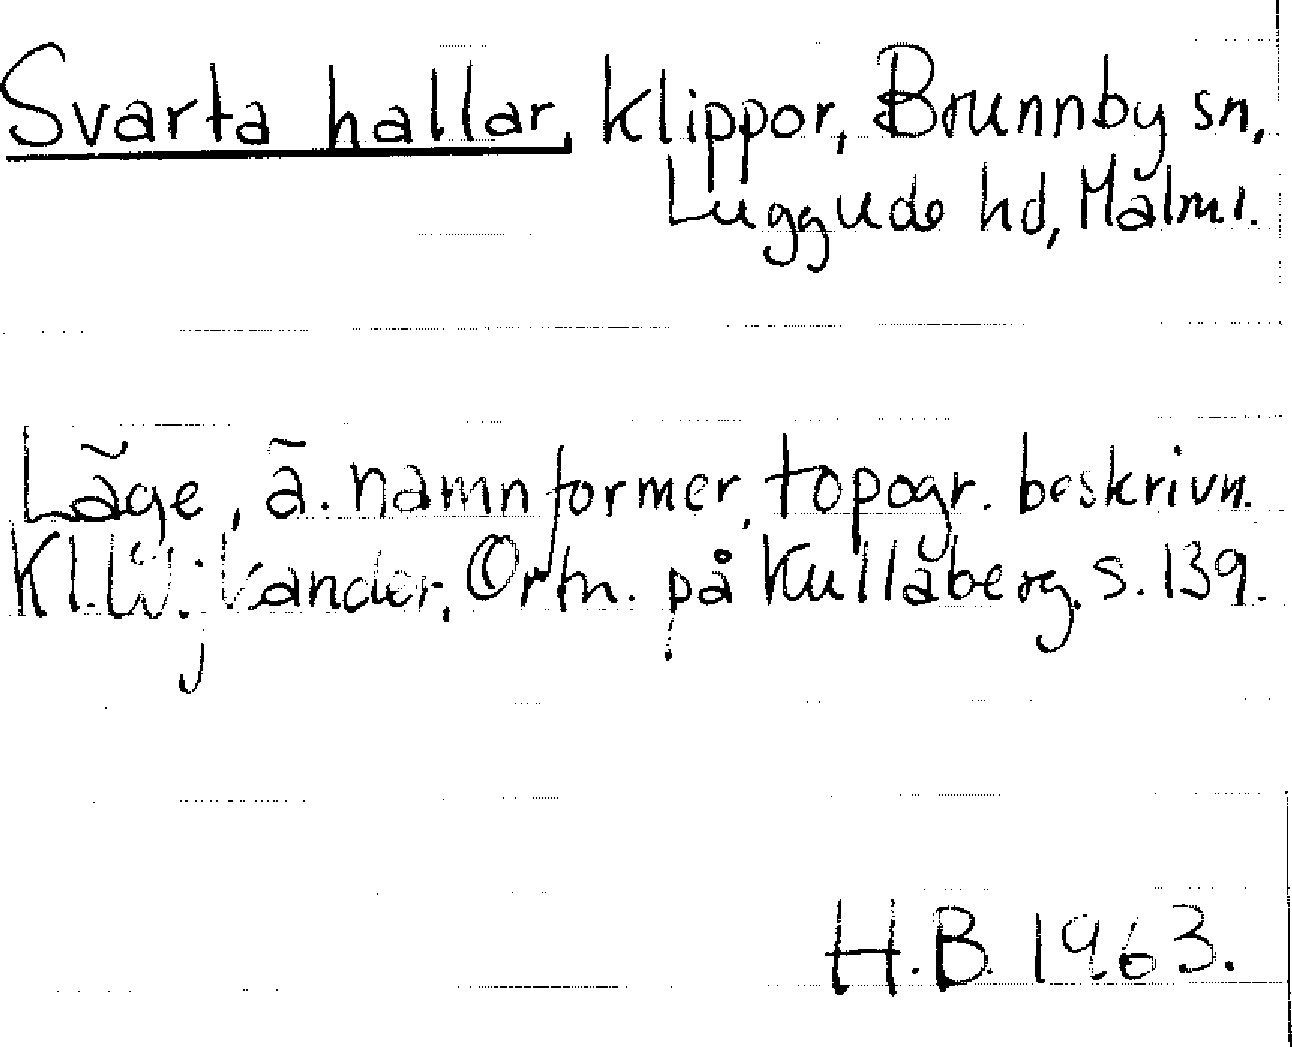 Svarta hallar, klippor, Brunnby sn,
Luggude hd, Malm l.
Läge, ä. namnformer, topogr. beskrivn.
Kl. Ortn. på Kullaberg, s. 139.
H.B. 1963.